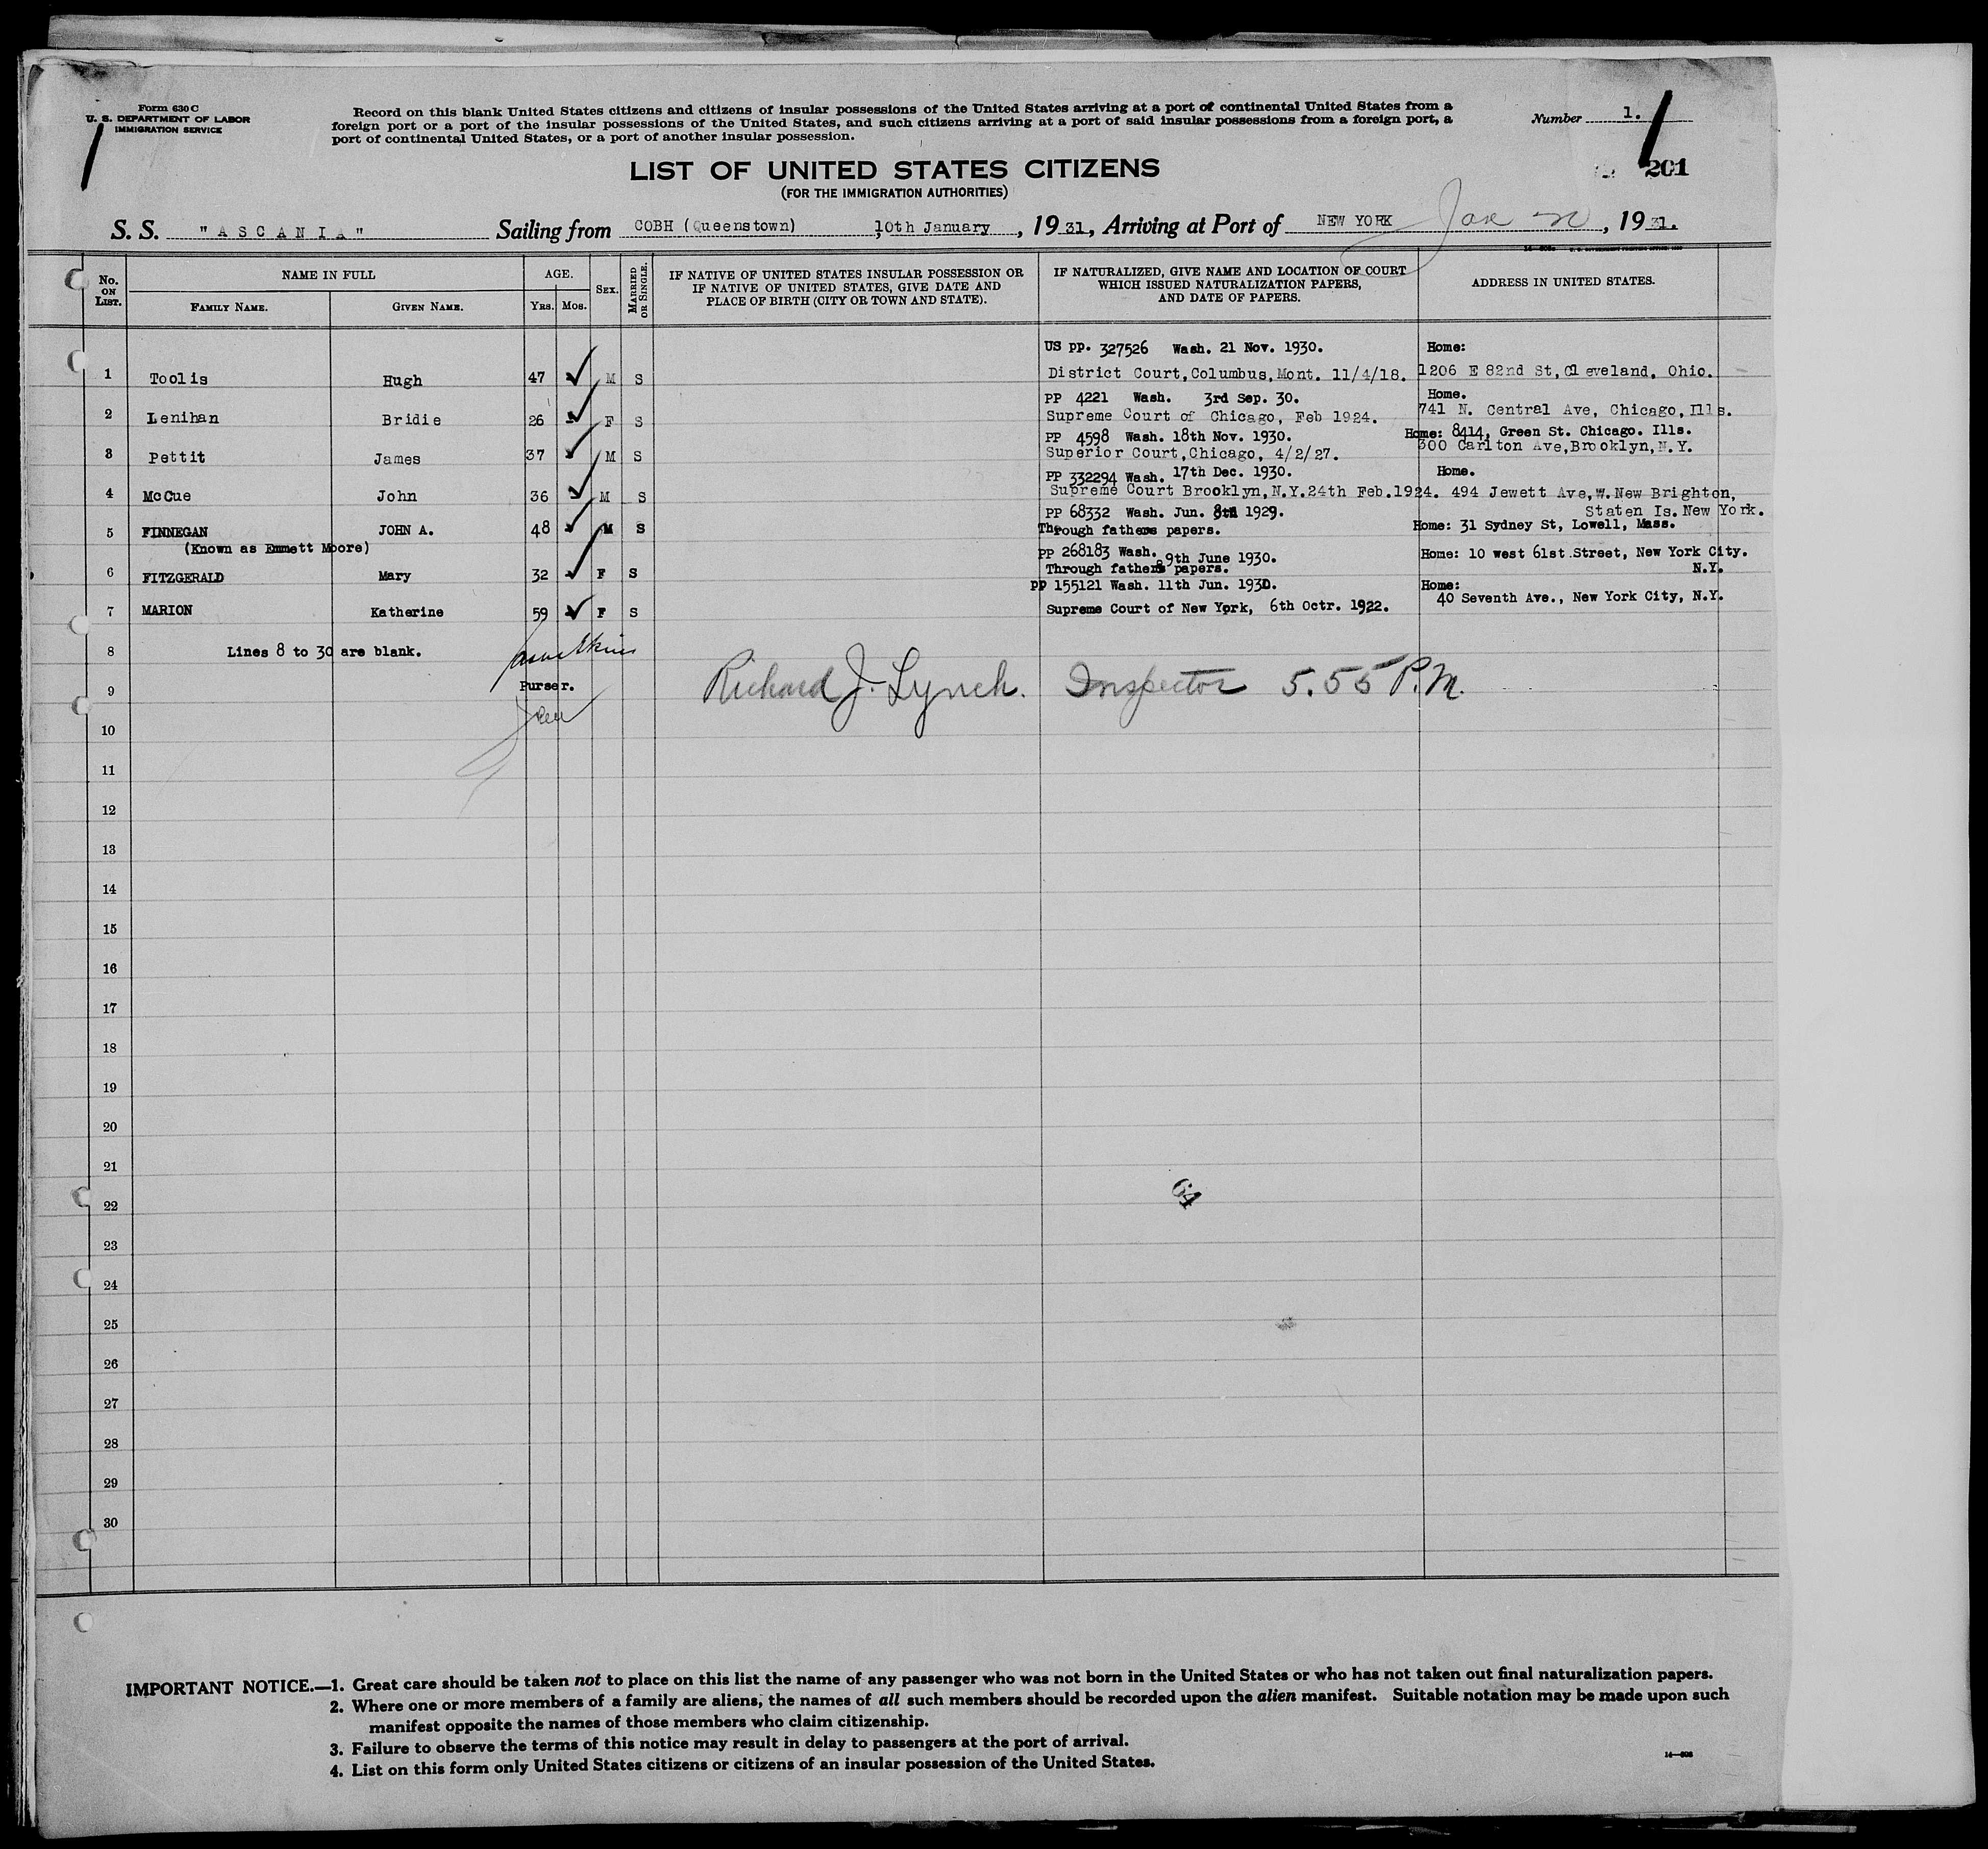 Form 630 C
U. S. DEPARTMENT OF LABOR
IMMIGRATION SERVICE
Record on this blank United States citizens and citizens of insular possessions of the United States arriving at a port of continental United States from a
foreign port or a port of the insular possessions of the United States, and such citizens arriving at a port of said insular possessions from a foreign port, a
port of continental United States, or a port of another insular possession.
Number 1.
201
LIST OF UNITED STATES CITIZENS
(FOR THE IMMIGRATION AUTHORITIES)
S. S. "ASCANIA" Sailing from COBH (Queenstown) 10th January, 1931, Arriving at Port of NEW YORK Jan, 1931.
No. ON LIST.
NAME IN FULL
FAMILY NAME. GIVEN NAME.
AGE.
YRS. MOS.
SEX.
MARRIED OR SINGLE.
IF NATIVE OF UNITED STATES INSULAR POSSESSION OR
IF NATIVE OF UNITED STATES, GIVE DATE AND
PLACE OF BIRTH (CITY OR TOWN AND STATE).
IF NATURALIZED, GIVE NAME AND LOCATION OF COURT
WHICH ISSUED NATURALIZATION PAPERS,
AND DATE OF PAPERS.
ADDRESS IN UNITED STATES.
US PP. 327526 Wash. 21 Nov. 1930. Home:
1 Toolis Hugh 47 M S District Court, Columbus, Mont. 11/4/18. 1206 E 82nd St, Cleveland, Ohio.
PP 4221 Wash. 3rd Sep. 30. Home.
2 Lenihan Bridie 26 F S Supreme Court of Chicago, Feb 1924. 741 N. Central Ave, Chicago, Ills.
PP 4598 Wash. 18th Nov. 1930. Home: 8414, Green St. Chicago. Ills.
3 Pettit James 37 M S Superior Court, Chicago, 4/2/27. 300 Carlton Ave, Brooklyn, N.Y.
PP 332294 Wash. 17th Dec. 1930. Home.
4 McCue John 36 M S Supreme Court Brooklyn, N.Y. 24th Feb. 1924. 494 Jewett Ave, W. New Brighton,
Staten Is. New York.
PP 68332 Wash. Jun. 8th 1929.
5 FINNEGAN JOHN A. 48 M S Through fathers papers. Home: 31 Sydney St, Lowell, Mass.
(Known as Emmett Moore)
PP 268183 Wash. 9th June 1930. Home: 10 west 61st Street, New York City.
6 FITZGERALD Mary 32 F S Through fathers papers. N.Y.
PP 155121 Wash. 11th Jun. 1930. Home:
7 MARION Katherine 59 F S Supreme Court of New York, 6th Octr. 1922. 40 Seventh Ave., New York City, N.Y.
8 Lines 8 to 30 are blank.
9 Purser. Richard J. Lynch. Inspector 5.55 P.M.
10
11
12
13
14
15
16
17
18
19
20
21
22
64
23
24
25
26
27
28
29
30
IMPORTANT NOTICE.—1. Great care should be taken not to place on this list the name of any passenger who was not born in the United States or who has not taken out final naturalization papers.
2. Where one or more members of a family are aliens, the names of all such members should be recorded upon the alien manifest. Suitable notation may be made upon such
manifest opposite the names of those members who claim citizenship.
3. Failure to observe the terms of this notice may result in delay to passengers at the port of arrival.
4. List on this form only United States citizens or citizens of an insular possession of the United States.